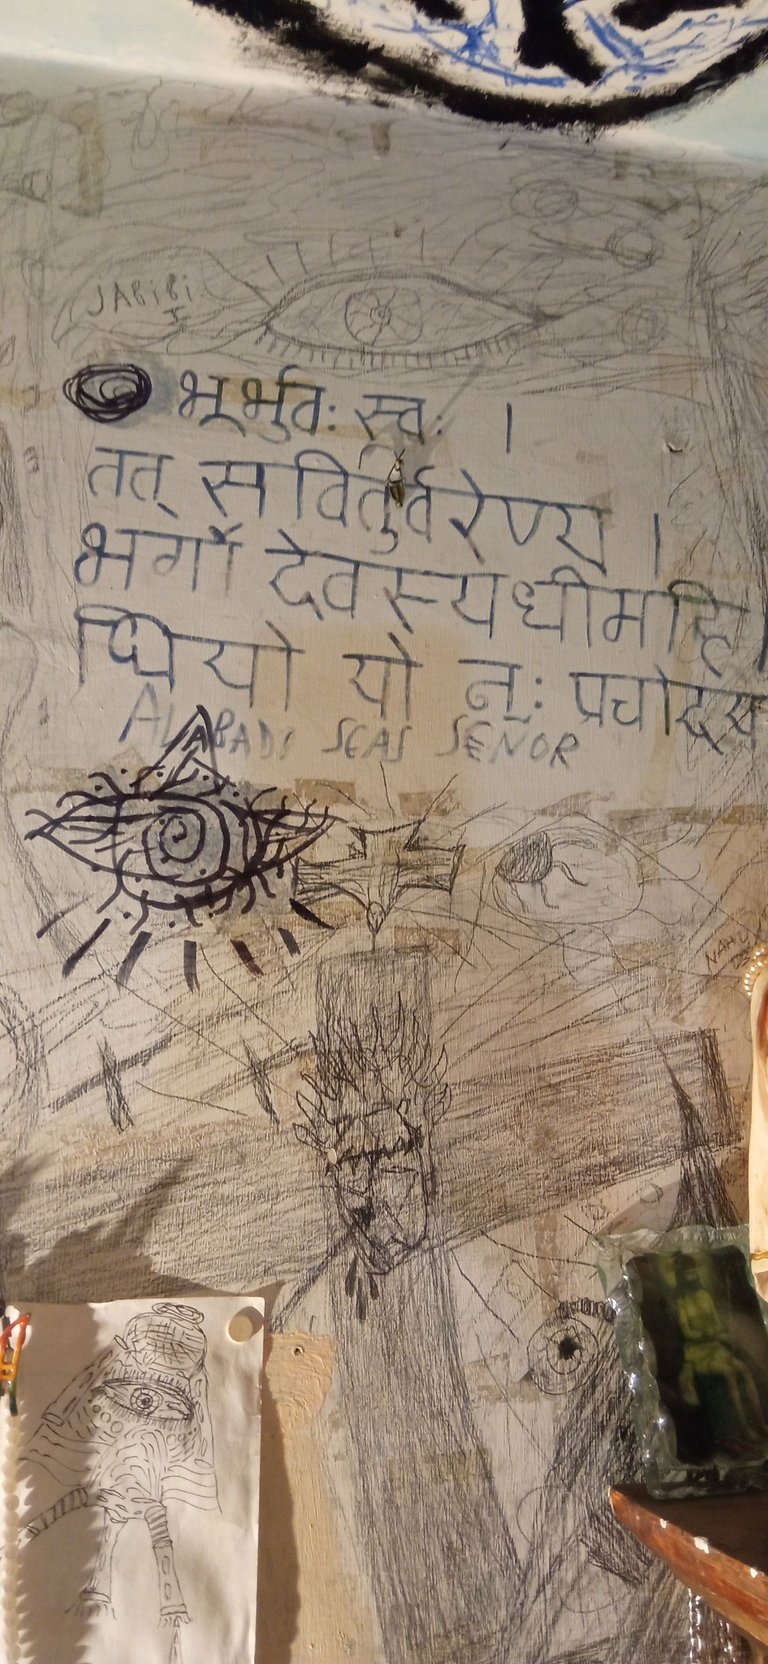 JABIBI
भूर्भुवः स्वः ।
तत् स वितुर्वरेण्य ।
भर्गो देवस्यधीमहि ।
धियो यो नः प्रचोदय
ALABADO SEAS SEÑOR